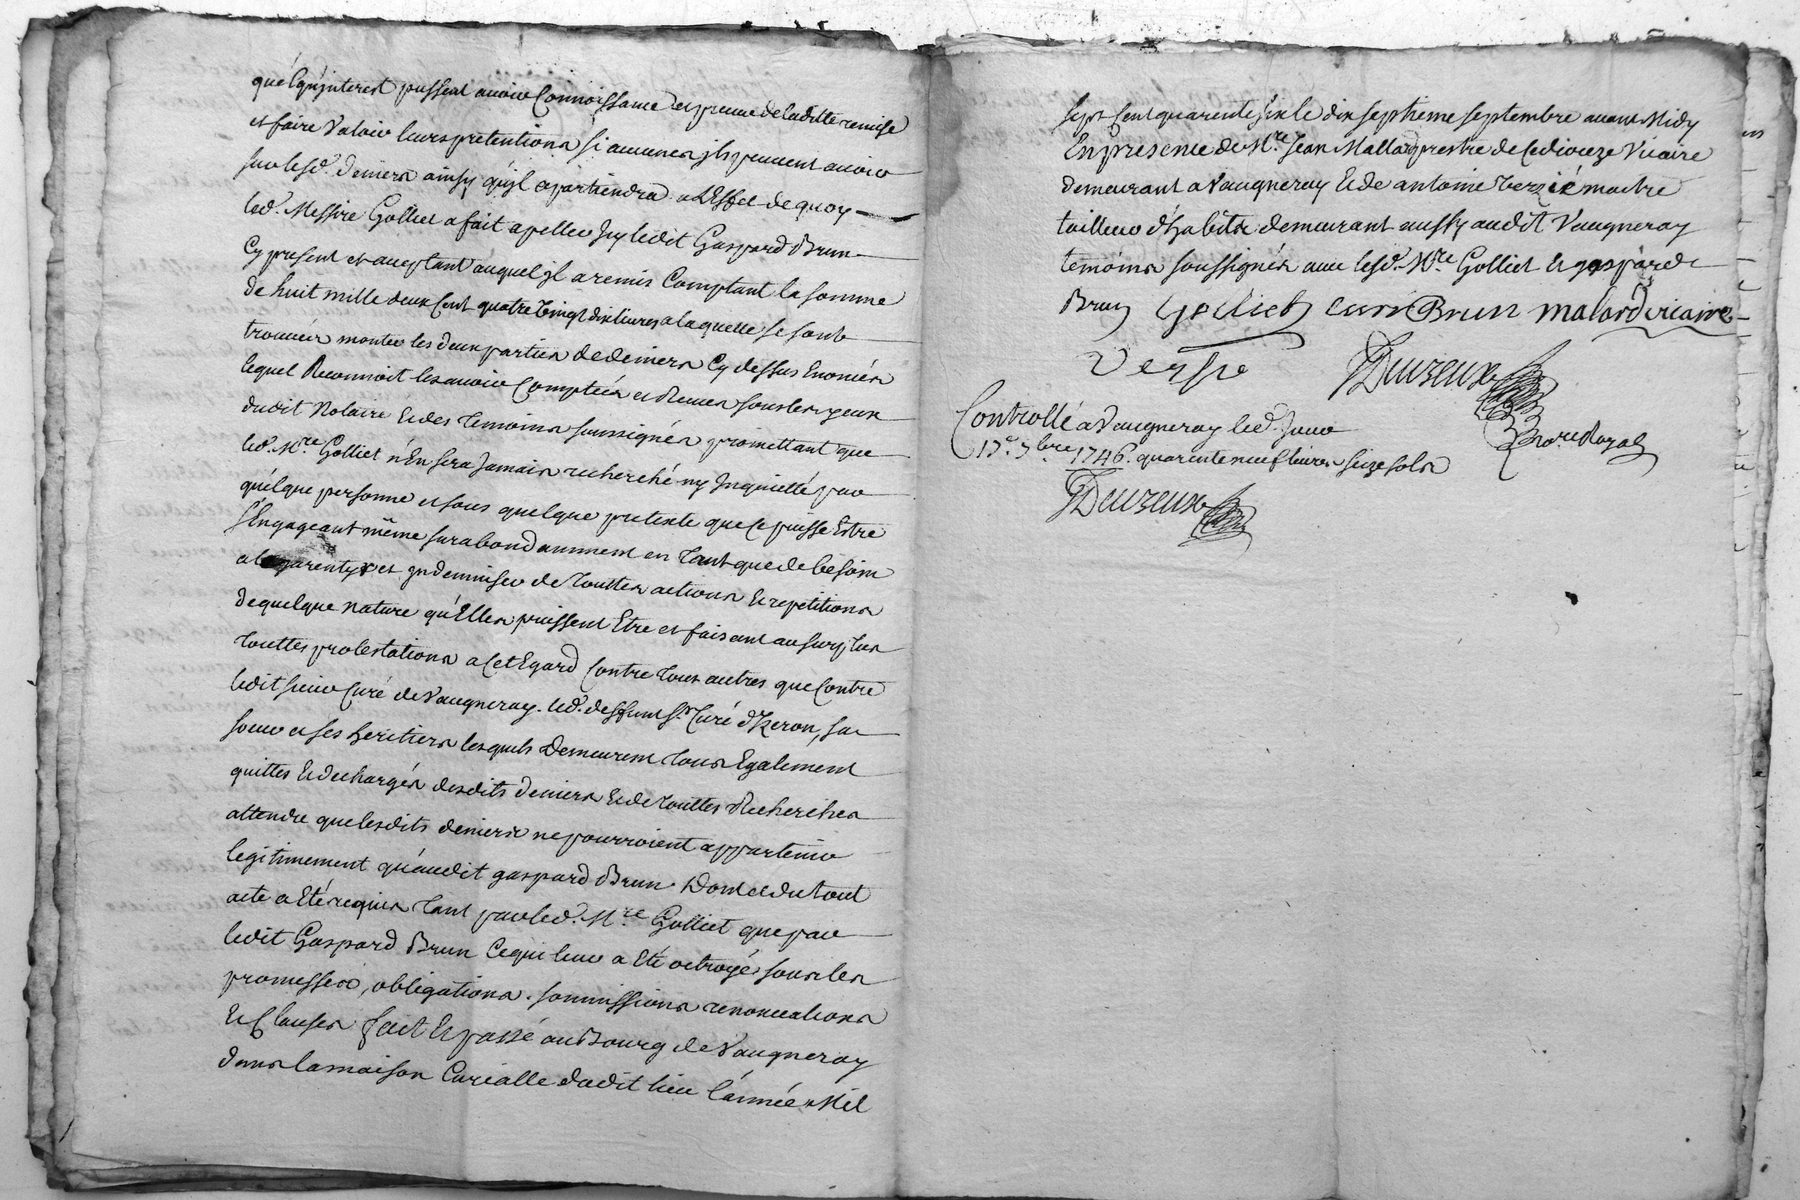 quélqu'jnterest pussent auoir Connoissance et preuue de laditte remise
et faire Valoir leurs pretentions si aucunes jls peuuent auoir
sur lesd. deniers ainsy qu'jl apartiendra a L'Effet de quoy
led. Messire Golliet a fait apeller Jcy ledit Gaspard Brun
Cy present et aceptant auquel jl a remis Comptant la somme
de huit mille deux Cent quatre Vingt dix liures a laquelle se sont
trouuées monter les deux parties de deniers Cy dessus Enoncées
lequel Reconnoit les auoir Comptées et Reçues sous les yeux
dudit Notaire Et des Temoins soussignés promettant que
led. Mre Golliet n'En sera Jamais recherché ny Jnquietté par
quélque personne et sous quelque pretexte que Ce puisse Estre
s'Engageant même surabondamment en Tant que de besoin
a le garentyr et jndemniser de Touttes actions Et repetitions
de quelque nature qu'Elles puissent Etre et faisant au surplus
Touttes protestations a Cet Egard Contre Tous autres que Contre
ledit sieur Curé de Vaugneray. led. deffunt Sr Curé d'Izeron, sa
soeur et ses heritiers lesquels Demeurent Tous Egalement
quittes Et dechargés desdits deniers Et de Touttes Recherches
attendu que lesdits deniers ne pourroient appartenir
legitimement qu'audit gaspard Brun. Dont et du tout
acte a Eté requis Tant par led. Mre Golliet que par
ledit Gaspard Brun Ce qui leur a Eté octroyé sous les
promesses, obligations. sommissions renonciations
Et Clauses fait Et passé au Bourg de Vaugneray
dans la maison Curialle dudit lieu l'année Mil
sept Cent quarente six le dix septieme septembre auant Midy
En presence de Mre Jean Mallard prestre de Vicaire
demeurant a Vaugneray Et de antoine maitre
tailleur d'habits demeurant aussy audit Vaugneray
temoins soussignés auec lesd. Mre Golliet Et gaspard
Brun Golliet curé Brun malard vicaire
Deuzeux
Nore Royal
Controllé a Vaugneray led. Jour
17e 7bre 1746. quarente neuf liures seize sols
Deuzeux